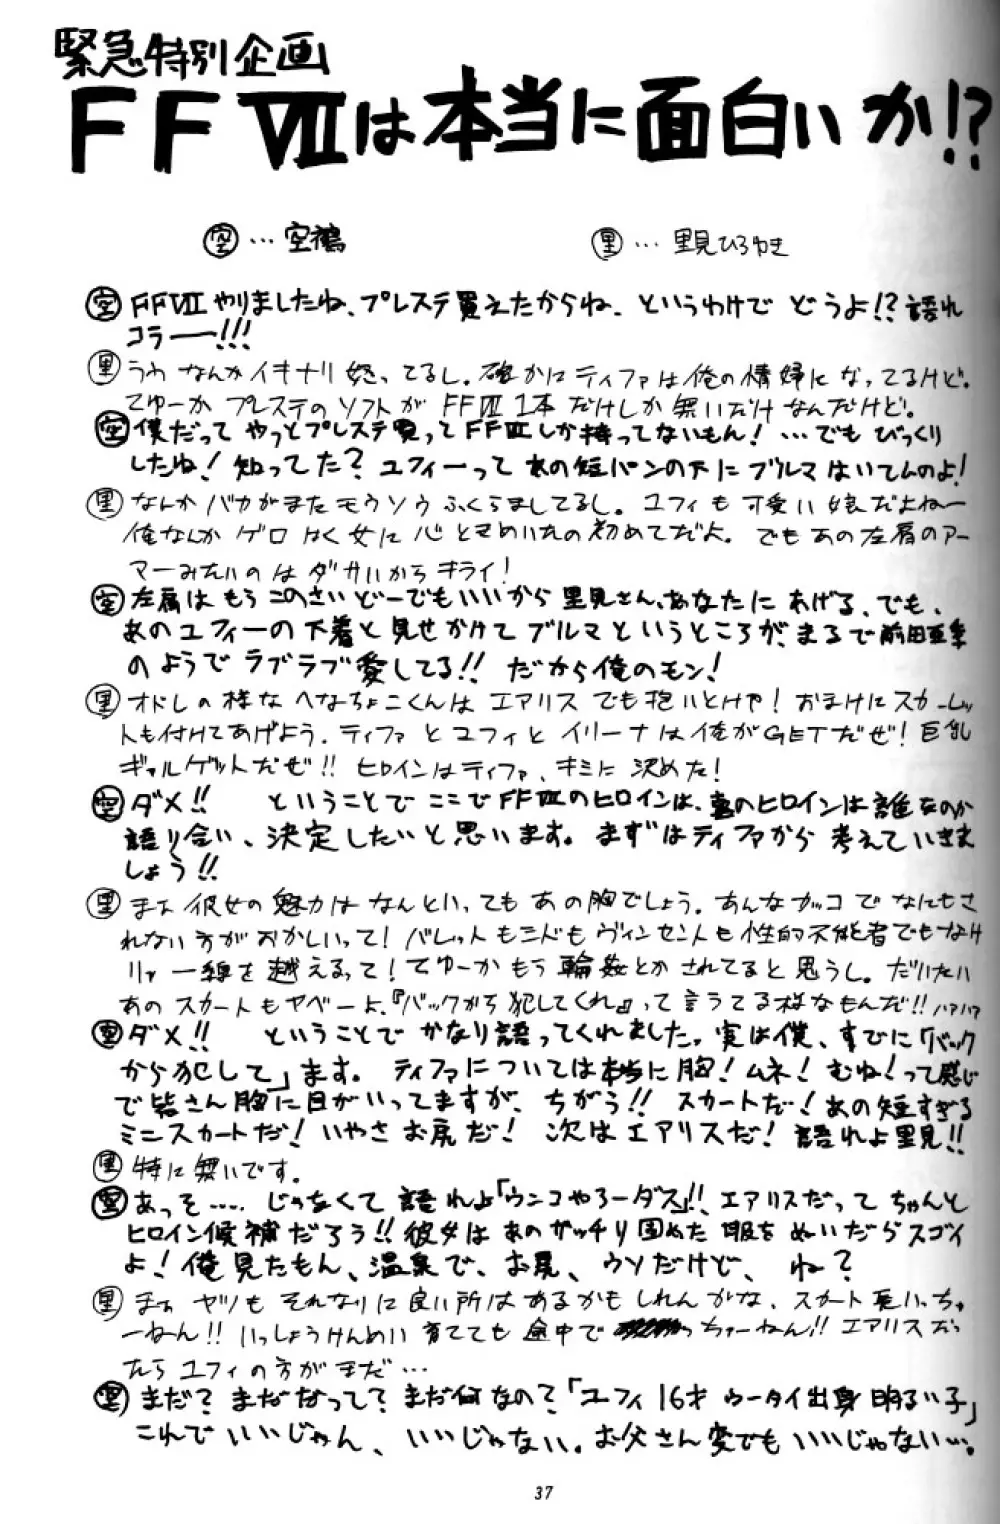 緊急特別企画
FFⅦは本当に面白いか!?
空…空鵺
里…里見ひろゆき
空 FFⅦやりましたね、プレステ買えたからね、というわけで どうよ!? 語れ
コラーー!!!
里 うわ なんかイキナリ怒ってるし。確かにティファは俺の情婦になってるけど。
てゆーか プレステのソフトが FFⅦ1本だけしか無いだけなんだけど。
空 僕だって やっとプレステ買ってFFⅦしか持ってないもん! …でもびっくり
したね! 知ってた? ユフィーって あの短パンの下にブルマはいてんのよ!
里 なんかバカがまたモウソウふくらましてるし。ユフィも可愛い娘だよねー
俺なんか ゲロはく女に心ときめいたの初めてだよ。でもあの左肩のアー
マーみたいのはダサいからキライ!
空 左肩はもうこのさいどーでもいいから里見さん、あなたにあげる、でも、
あのユフィーの下着と見せかけてブルマというところが、まるで前田亜季
のようでラブラブ愛してる!! だから俺のモン!
里 オドシの様なへなちょこくんは エアリスでも抱いとけや! おまけにスカーレッ
トも付けてあげよう。ティファとユフィとイリーナは俺がGETだぜ! 巨乳
ギャルゲットだぜ!! ヒロインはティファ、キミに決めた!
空 ダメ!! ということでここでFFⅦのヒロインは、真のヒロインは誰なのか
語り合い、決定したいと思います。まずはティファから考えていきま
しょう!!
里 まぁ 彼女の魅力はなんといってもあの胸でしょう。あんなカッコでなにもさ
れない方がおかしいって! バレットもシドもヴィンセントも性的不能者でもなけ
りゃ一線を越えるって! てゆーかもう輪姦とかされてると思うし。だいたい
あのスカートもヤベーよ、『バックから犯してくれ』って言ってる様なもんだ!! ハァハァ
空 ダメ!! ということでかなり語ってくれました。実は僕、すでに「バック
から犯して」ます。ティファについては本当に胸! ムネ! むね! って感じ
で皆さん胸に目がいってますが、ちがう!! スカートだ! あの短すぎる
ミニスカートだ! いやさお尻だ! 次はエアリスだ! 語れよ里見!!
里 特に無いです。
空 あっそ…. じゃなくて 語れよ「ウンコやろーダス」!! エアリスだって ちゃんと
ヒロイン候補だろう!! 彼女はあのガッチリ固めた服をぬいだらスゴイ
よ! 俺見たもん、温泉で、お尻、ウソだけど、ね?
里 まぁ ヤツもそれなりに良い所はあるかもしれんがな、スカート長いっちゅ
ーねん!! いっしょうけんめい育てても途中で っちゅーねん!! エアリスだっ
たらユフィの方がまだ…
空 まだ? まだなって? まだ何なの? 「ユフィ 16才 ウータイ出身 明るい子」
これでいいじゃん、いいじゃない。お父さん変でもいいじゃない…。
37